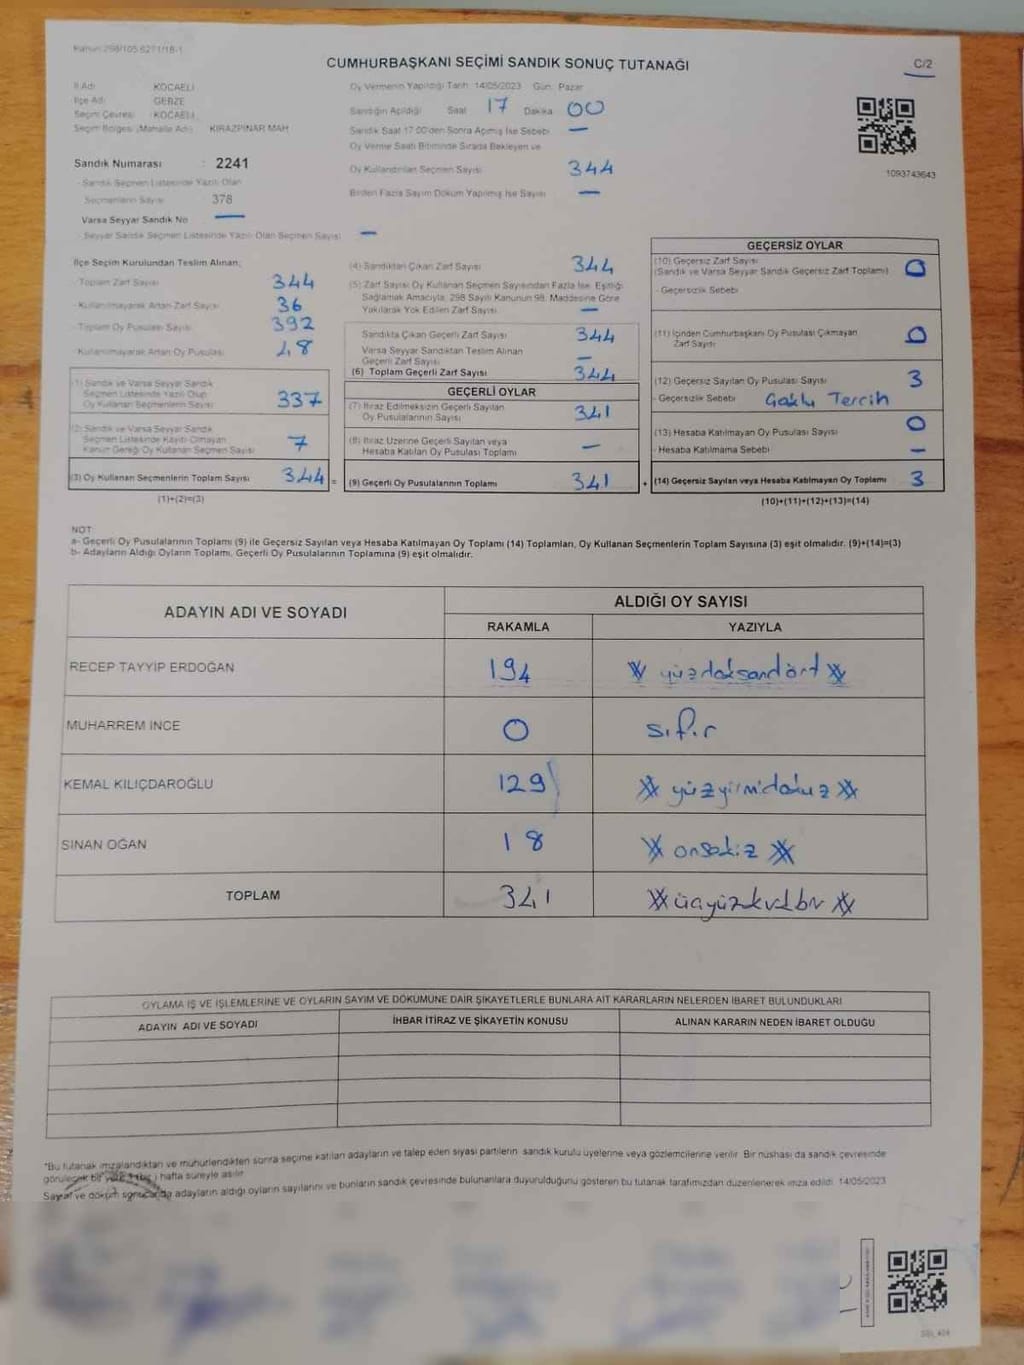 Kanun:298/105 6271/18-1
CUMHURBAŞKANI SEÇİMİ SANDIK SONUÇ TUTANAĞI
C/2
İl Adı KOCAELİ
İlçe Adı GEBZE
Seçim Çevresi : KOCAELİ
Seçim Bölgesi (Mahalle Adı) KİRAZPINAR MAH
Sandık Numarası : 2241
- Sandık Seçmen Listesinde Yazılı Olan
Seçmenlerin Sayısı 378
Varsa Seyyar Sandık No —
- Seyyar Sandık Seçmen Listesinde Yazılı Olan Seçmen Sayısı —
Oy Vermenin Yapıldığı Tarih 14/05/2023 Gün: Pazar
Sandığın Açıldığı Saat 17 Dakika 00
Sandık Saat 17:00'den Sonra Açılmış İse Sebebi —
Oy Verme Saati Bitiminde Sırada Bekleyen ve
Oy Kullandırılan Seçmen Sayısı 344
Birden Fazla Sayım Döküm Yapılmış İse Sayısı —
1093743643
İlçe Seçim Kurulundan Teslim Alınan;
- Toplam Zarf Sayısı 344
- Kullanılmayarak Artan Zarf Sayısı 36
- Toplam Oy Pusulası Sayısı 392
- Kullanılmayarak Artan Oy Pusulası 48
(1) Sandık ve Varsa Seyyar Sandık
Seçmen Listesinde Yazılı Olup
Oy Kullanan Seçmenlerin Sayısı 337
(2) Sandık ve Varsa Seyyar Sandık
Seçmen Listesinde Kayıtlı Olmayan
Kanun Gereği Oy Kullanan Seçmen Sayısı 7
(3) Oy Kullanan Seçmenlerin Toplam Sayısı 344 =
(1)+(2)=(3)
(4) Sandıktan Çıkan Zarf Sayısı 344
(5) Zarf Sayısı Oy Kullanan Seçmen Sayısından Fazla İse, Eşitliği
Sağlamak Amacıyla, 298 Sayılı Kanunun 98. Maddesine Göre
Yakılarak Yok Edilen Zarf Sayısı —
Sandıkta Çıkan Geçerli Zarf Sayısı 344
Varsa Seyyar Sandıktan Teslim Alınan
Geçerli Zarf Sayısı —
(6) Toplam Geçerli Zarf Sayısı 344
GEÇERLİ OYLAR
(7) İtiraz Edilmeksizin Geçerli Sayılan
Oy Pusulalarının Sayısı 341
(8) İtiraz Üzerine Geçerli Sayılan veya
Hesaba Katılan Oy Pusulası Toplamı —
(9) Geçerli Oy Pusulalarının Toplamı 341 +
GEÇERSİZ OYLAR
(10) Geçersiz Zarf Sayısı 0
(Sandık ve Varsa Seyyar Sandık Geçersiz Zarf Toplamı)
- Geçersizlik Sebebi
(11) İçinden Cumhurbaşkanı Oy Pusulası Çıkmayan
Zarf Sayısı 0
(12) Geçersiz Sayılan Oy Pusulası Sayısı 3
- Geçersizlik Sebebi Çoklu Tercih
(13) Hesaba Katılmayan Oy Pusulası Sayısı 0
- Hesaba Katılmama Sebebi —
(14) Geçersiz Sayılan veya Hesaba Katılmayan Oy Toplamı 3
(10)+(11)+(12)+(13)=(14)
NOT:
a- Geçerli Oy Pusulalarının Toplamı (9) ile Geçersiz Sayılan veya Hesaba Katılmayan Oy Toplamı (14) Toplamları, Oy Kullanan Seçmenlerin Toplam Sayısına (3) eşit olmalıdır. (9)+(14)=(3)
b- Adayların Aldığı Oyların Toplamı, Geçerli Oy Pusulalarının Toplamına (9) eşit olmalıdır.
ADAYIN ADI VE SOYADI
ALDIĞI OY SAYISI
RAKAMLA YAZIYLA
RECEP TAYYİP ERDOĞAN 194 yüzdoksandört
MUHARREM İNCE 0 sıfır
KEMAL KILIÇDAROĞLU 129 yüzyirmidokuz
SİNAN OĞAN 18 onsekiz
TOPLAM 341 üçyüzkırkbir
OYLAMA İŞ VE İŞLEMLERİNE VE OYLARIN SAYIM VE DÖKÜMÜNE DAİR ŞİKAYETLERLE BUNLARA AİT KARARLARIN NELERDEN İBARET BULUNDUKLARI
ADAYIN ADI VE SOYADI İHBAR İTİRAZ VE ŞİKAYETİN KONUSU ALINAN KARARIN NEDEN İBARET OLDUĞU
*Bu tutanak imzalandıktan ve mühürlendikten sonra seçime katılan adayların ve talep eden siyasi partilerin sandık kurulu üyelerine veya gözlemcilerine verilir. Bir nüshası da sandık çevresinde
görülecek bir yere 1 (bir) hafta süreyle asılır.
Sayım ve döküm sonucunda adayların aldığı oyların sayılarını ve bunların sandık çevresinde bulunanlara duyurulduğunu gösteren bu tutanak tarafımızdan düzenlenerek imza edildi. 14/05/2023